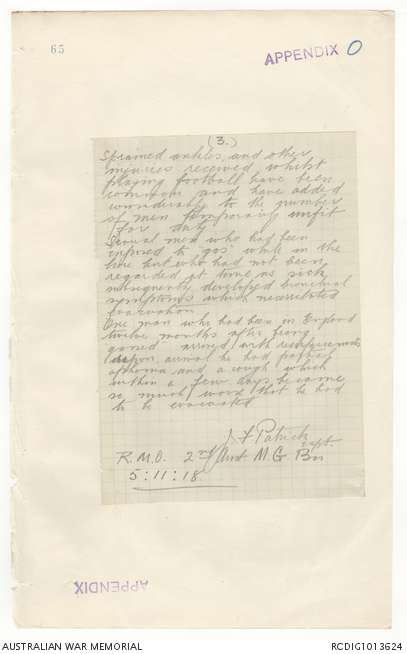 65
APPENDIX O
(3.)
Sprained ankles and other
injuries received whilst
playing football have been
common and have added
considerably to the number
of men temporarily unfit
for duty
Several men who had been
exposed to "gas" while in the
line but who had not been
regarded at time as sick
subsequently developed bronchial
symptoms which necessitated
Evacuation
One man who had been in England
twelve months after being
gassed arrived with reinforcements
upon arrival he had partial
aphonia and a cough which
within a few days became
so much worse that he had
to be evacuated
J F Patrick
Capt
R.M.O. 2nd Aust M G Bn
5:11:18
APPENDIX
AUSTRALIAN WAR MEMORIAL
RCDIG1013624